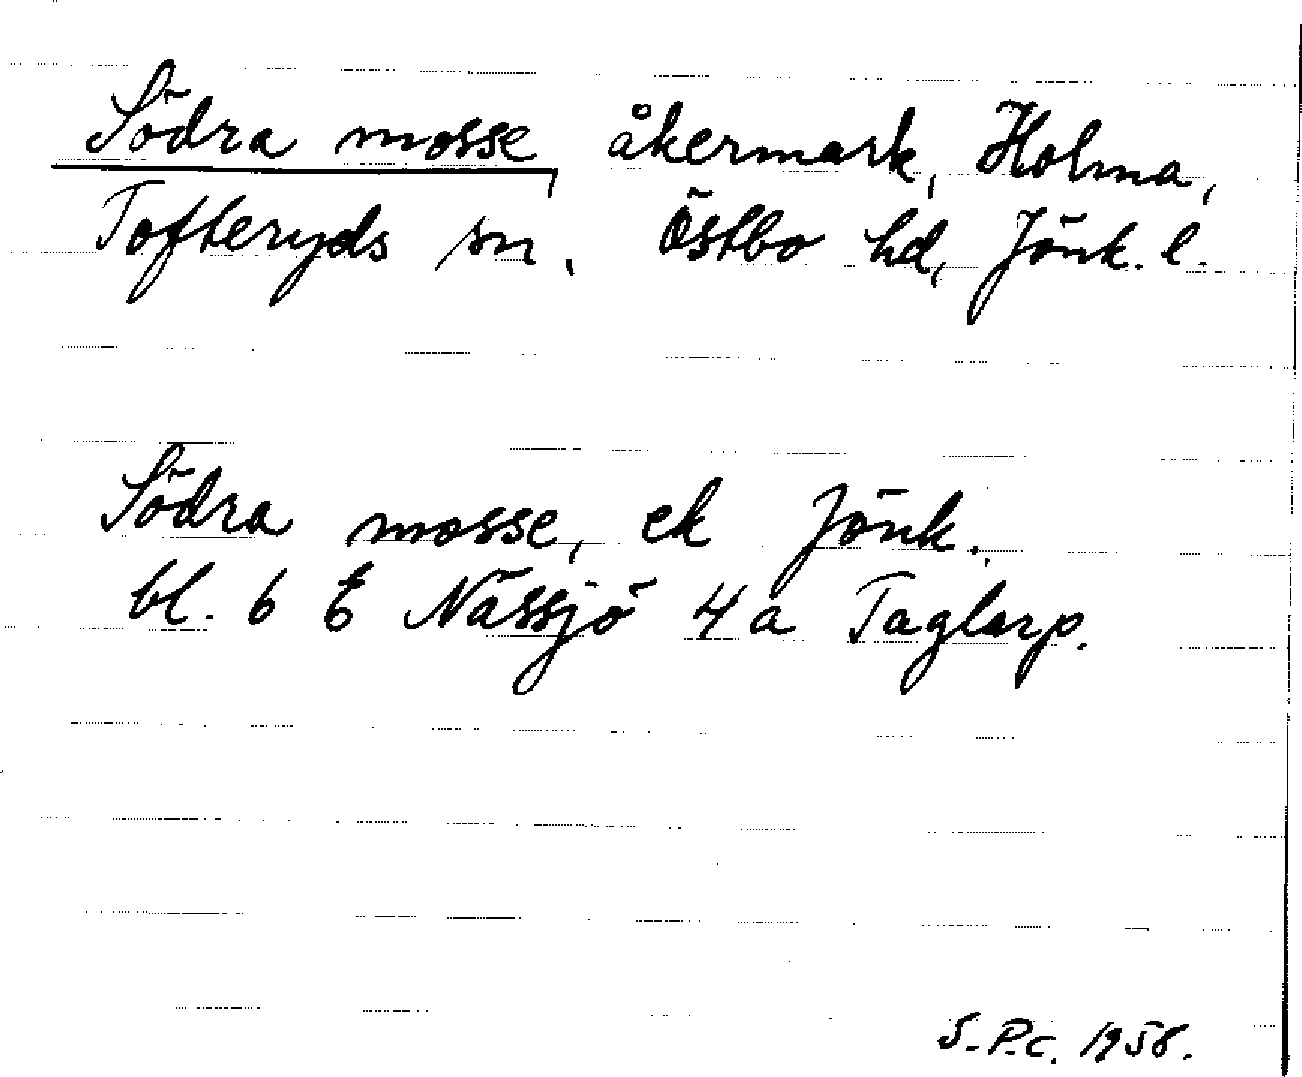 Södra mosse, åkermark, Holma,
Tofteryds sn, Östbo hd, Jönk. l.
Södra mosse, ek Jönk.
bl. 6 E Nässjö 4 a Taglarp.
S.P.C. 1958.